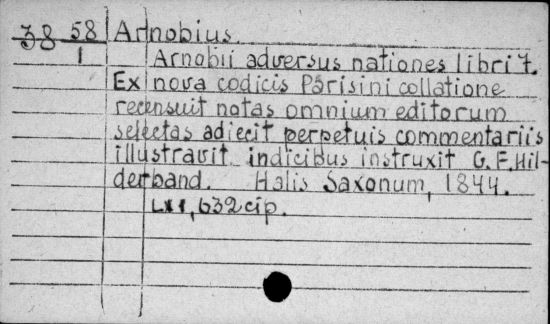 38 58 Arnobius.
1 Arnobii adversus nationes libri 7.
Ex nova codicis Parisini collatione
recensuit notas omnium editorum
selectas adiecit perpetuis commentariis
illustravit indicibus instruxit G. F. Hil-
derband. Halis Saxonum, 1844.
632 cip.